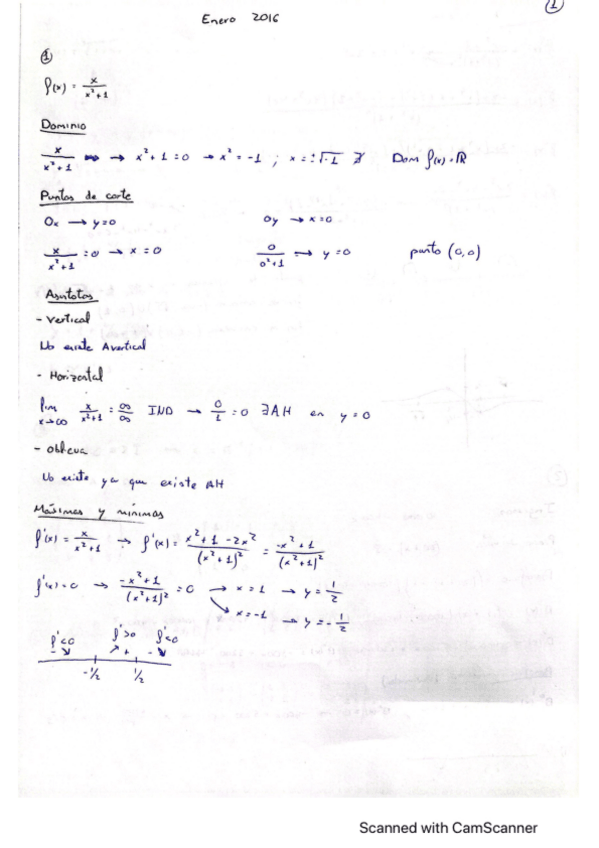 1
Enero 2016
①
f(x) = x/(x²+1)
Dominio
x/(x²+1) → x²+1=0 → x²=-1 ; x=±√-1 ∄ Dom f(x)=ℝ
Puntos de corte
Ox → y=0 Oy → x=0
x/(x²+1) =0 → x=0 0/(0²+1) → y=0 punto (0,0)
Asíntotas
- Vertical
No existe A vertical
- Horizontal
lim x→∞ x/(x²+1) = ∞/∞ IND → 0/1 =0 ∃AH en y=0
- Oblicua
No existe ya que existe AH
Máximos y mínimos
f'(x) = x/(x²+1) → f'(x) = (x²+1-2x²)/(x²+1)² = (-x²+1)/(x²+1)²
f'(x)=0 → (-x²+1)/(x²+1)² =0 → x=1 → y=1/2
↘ x=-1 → y=-1/2
f'<0 f'>0 f'<0
- ↘ ↗ + - ↘
-1/2 1/2
Scanned with CamScanner